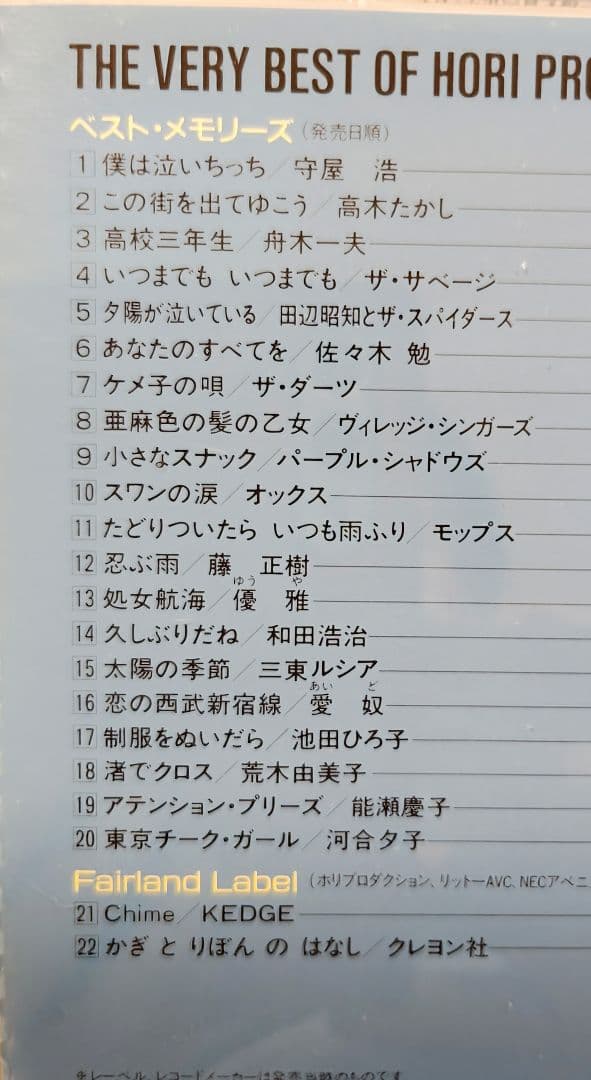 THE VERY BEST OF HORI PRO
ベスト・メモリーズ(発売日順)
1 僕は泣いちっち/守屋 浩
2 この街を出てゆこう/高木たかし
3 高校三年生/舟木一夫
4 いつまでも いつまでも/ザ・サベージ
5 夕陽が泣いている/田辺昭知とザ・スパイダース
6 あなたのすべてを/佐々木 勉
7 ケメ子の唄/ザ・ダーツ
8 亜麻色の髪の乙女/ヴィレッジ・シンガーズ
9 小さなスナック/パープル・シャドウズ
10 スワンの涙/オックス
11 たどりついたら いつも雨ふり/モップス
12 忍ぶ雨/藤 正樹
ゆう や
13 処女航海/優 雅
14 久しぶりだね/和田浩治
15 太陽の季節/三東ルシア
あい ど
16 恋の西武新宿線/愛 奴
17 制服をぬいだら/池田ひろ子
18 渚でクロス/荒木由美子
19 アテンション・プリーズ/能瀬慶子
20 東京チーク・ガール/河合夕子
Fairland Label(ホリプロダクション、リットーAVC、NECアベニ
21 Chime/KEDGE
22 かぎ と りぼん の はなし/クレヨン社
※レーベル、レコードメーカーは発売当時のものです